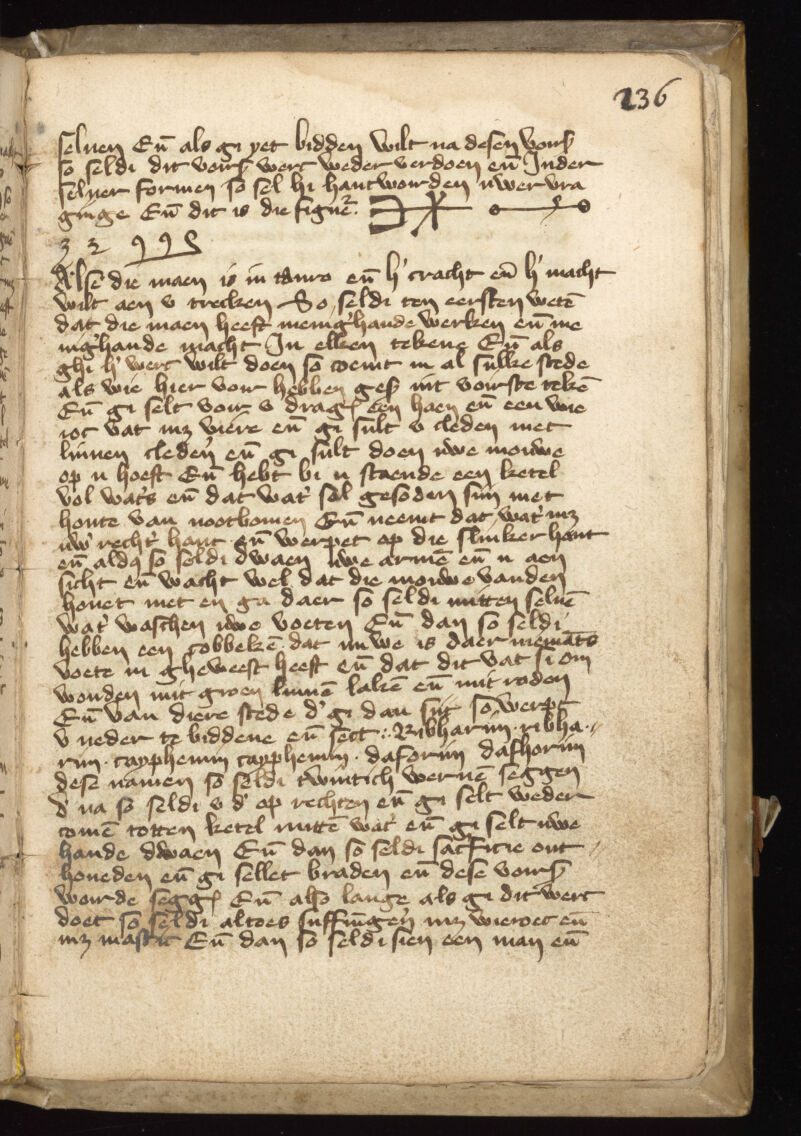 236
seluen En̄ als gi yet bidden wilt na desen vours̄
so seldi dit vours̄ werc weder verdoen en̄ Inder
seluer formen so sel hi hantwoorden uwer vra
ginge En̄ dit is die figuer̄.
3 2 9 9 5
Alse die maen is in tauro en̄ h' cracht en̄ h' macht
wilt aen v trecken So seldi ten eersten wetē
dat die maen heeft menig'hande werken en̄ me
nig'hande macht In elken tekene En̄ als
ghi h' werc wilt doen so coemt in al sulke stede
als wie hier vour hebben ges̄ int vourste tekē
En̄ gi selt vour v draḡ een haen en̄ een wie
roc vat mz viere en̄ gi sult v cleden met
linnen cleder̄ en̄ gi sult doen uwe mouwe
op u hoeft En̄ hebt bi u staende een ketel
vol wat's en̄ dat wat' sal gesoden sijn met
houte van nootbomen En̄ neemt dat wat' mz
uw' recht' hant en̄ werpet op die slinker hant
en̄ aldꝰ so seldi dwaen uwe armē en̄ u aen
sicht en̄ wacht wel dat die mouwe vanden
houet niet en ga daer so seldi mitten seluē
wat' waschen uwe voeten En̄ dan so seldi
hebben een cobbekē dat nuwe is daer niemāts
voete in gheweest heeft en̄ dat dit vat si om
wonden mit groen linnē lakē en̄ mit roden
En̄ van diere stede d' gi dan sijt so werpt
v neder te biddene en̄ sect: Ribharim . ribha
rim . cayphemm cayphemm . daforim dafhorim
dese namen so seldi twintich werue seggen
d' na so seldi v d' op rechten en̄ gi selt weder
comē totten ketel mittē wat' en̄ gi selt uwe
hande dwaen En̄ dan so seldi sacrificie ont
houeden en̄ gi sellet braden en̄ dese vours̄
wourde segḡ En̄ also lange als gi dit werc
doet so seldi altoes suffumgen mz wieroec en̄
mz mastic En̄ dan so seldi sien een man en̄